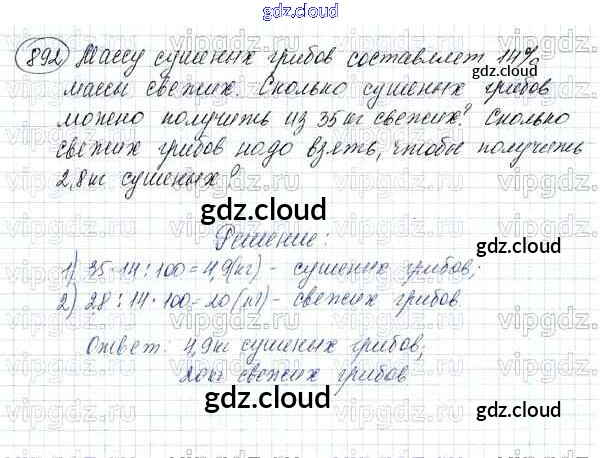 gdz.cloud
892) Массу сушеных грибов составляет 14%
gdz.cloud
массы свежих. Сколько сушеных грибов
можно получить из 35 кг свежих? Сколько
свежих грибов надо взять, чтобы получить
2,8 кг сушеных?
gdz.cloud
Решение:
1) 35·14:100=4,9(кг) - сушеных грибов;
2) 2,8:14·100=20(кг) - свежих грибов
gdz.cloud
Ответ: 4,9кг сушеных грибов,
20кг свежих грибов
gdz.cloud
gdz.cloud
vipgdz.ru